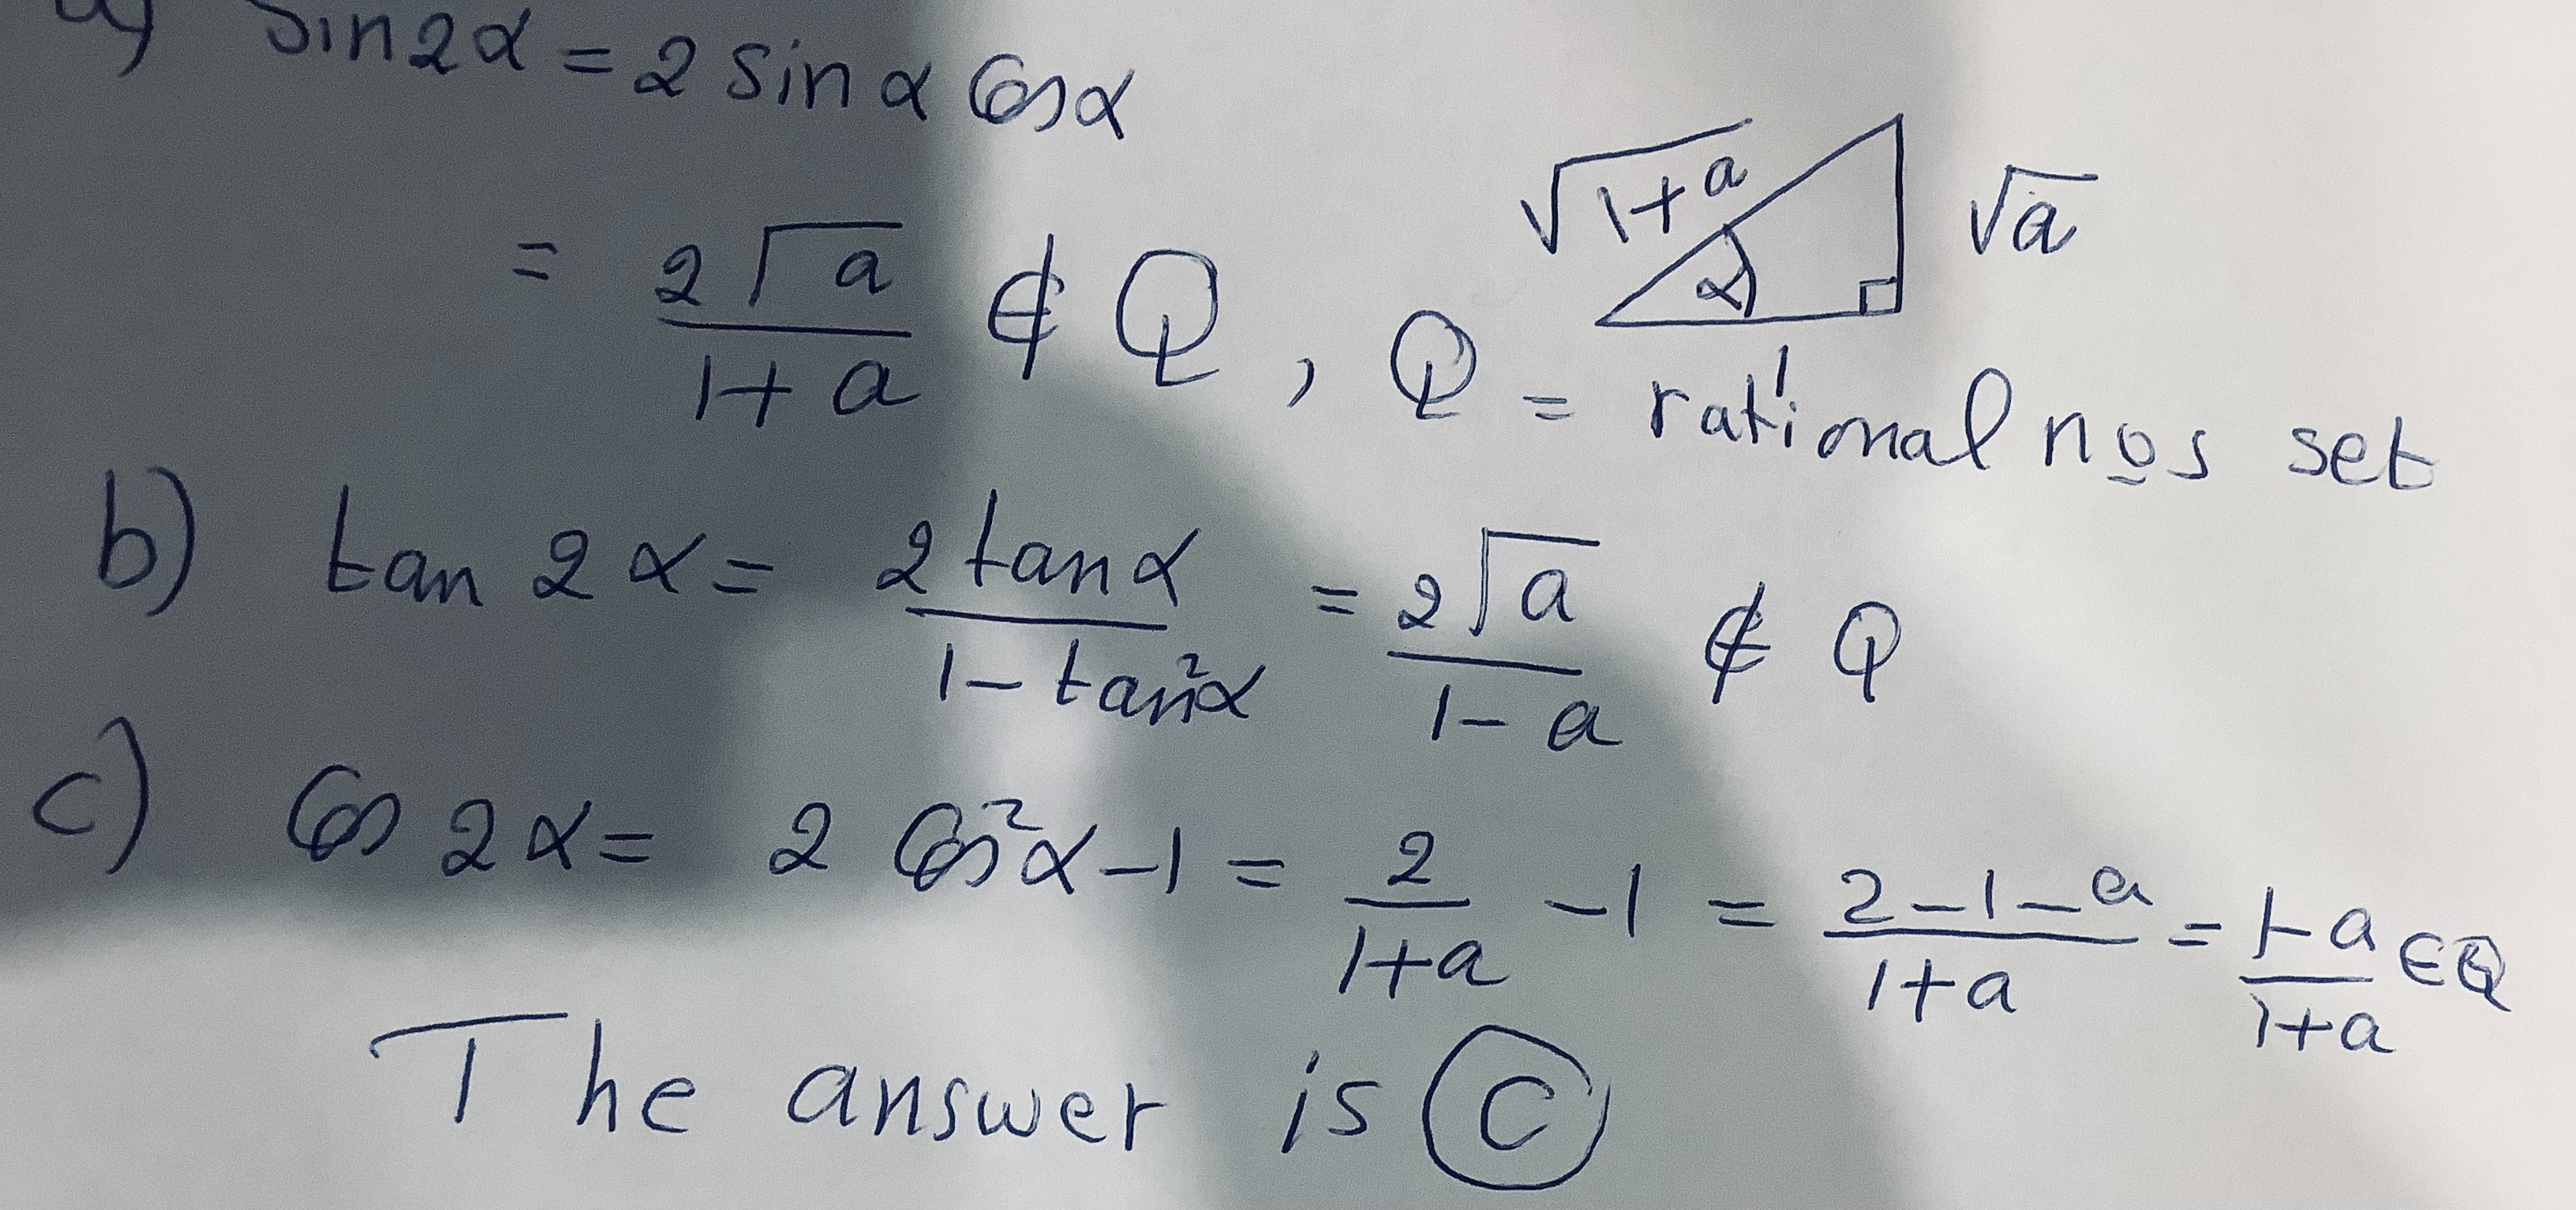 a) sin2α = 2 sin α cos α
= 2√a / 1+a ∉ Q , Q = rational nos set
√1+a
√a
α
1
b) tan 2α = 2 tan α / 1 - tan²α = 2√a / 1 - a ∉ Q
c) cos 2α = 2 cos²α - 1 = 2 / 1+a - 1 = 2-1-a / 1+a = 1-a / 1+a ∈ Q
The answer is C